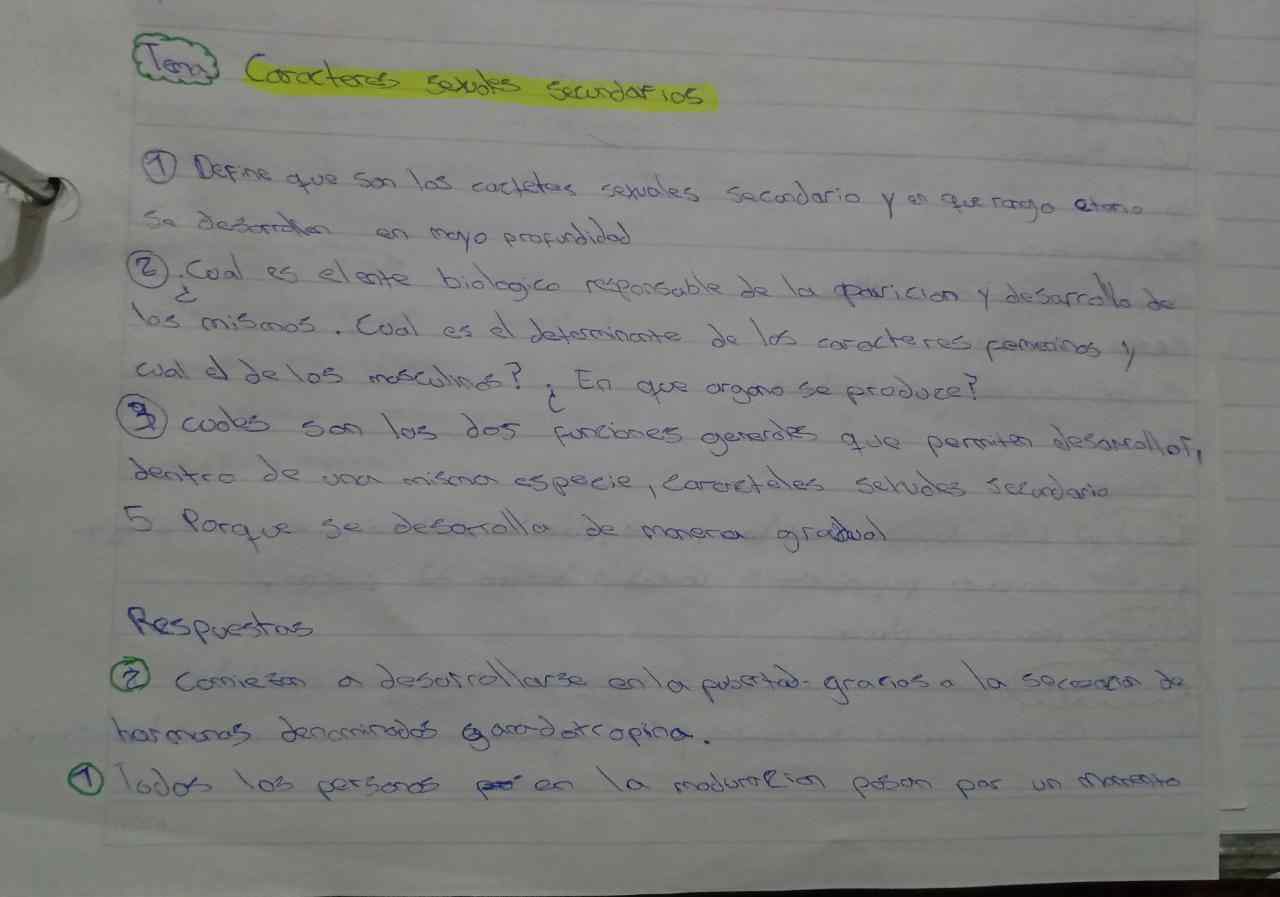 Tema Caracteres sexuales secundarios
① Define que son los cacteres sexuales secundario y en que rango etario
se desarrollan en mayo profundidad
② ¿Cual es el ente biologico responsable de la aparicion y desarrollo de
los mismos. Cual es el determinante de los caracteres femeninos y
cual el de los masculinos? ¿En que organo se produce?
③ cuales son las dos funciones generales que permiten desarrollar,
dentro de una misma especie, sexuales secundario
5 Porque se desarrolla de manera gradual
Respuestas
② Comiezan a desarrollarse en la pubertad gracias a la de
hormonas denominadas
① Todas las personas en la maduracion pasan por un momento